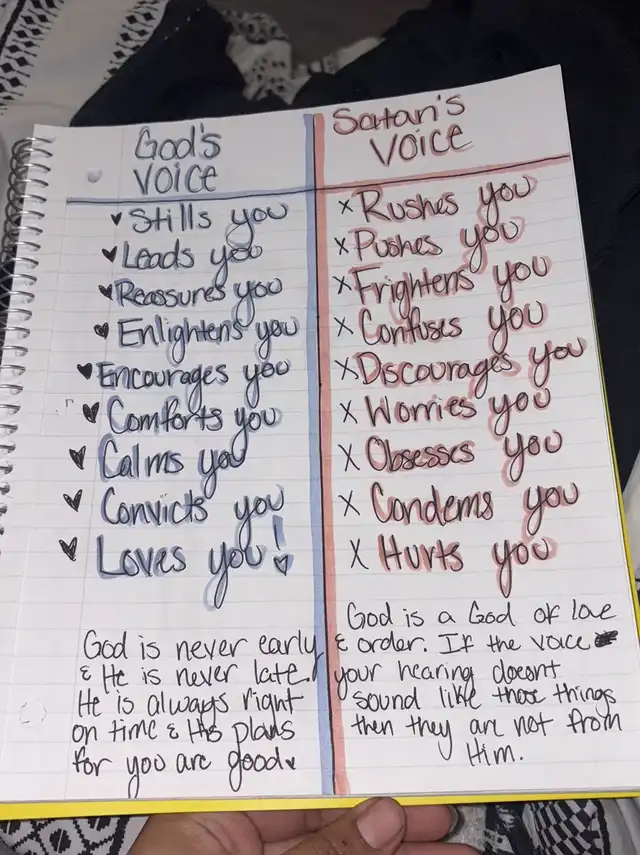 God's
Voice
Stills you
Leads you
Reassures you
Enlightens you
Encourages you
Comforts you
Calms you
Convicts you
Loves you!
God is never early
& He is never late.
He is always right
on time & His plans
for you are good
Satan's
Voice
x Rushes you
x Pushes you
x Frightens you
x Confuses you
x Discourages you
x Worries you
x Obsesses you
x Condems you
x Hurts you
God is a God of love
& order. If the voice
your hearing doesnt
sound like those things
then they are not from
Him.